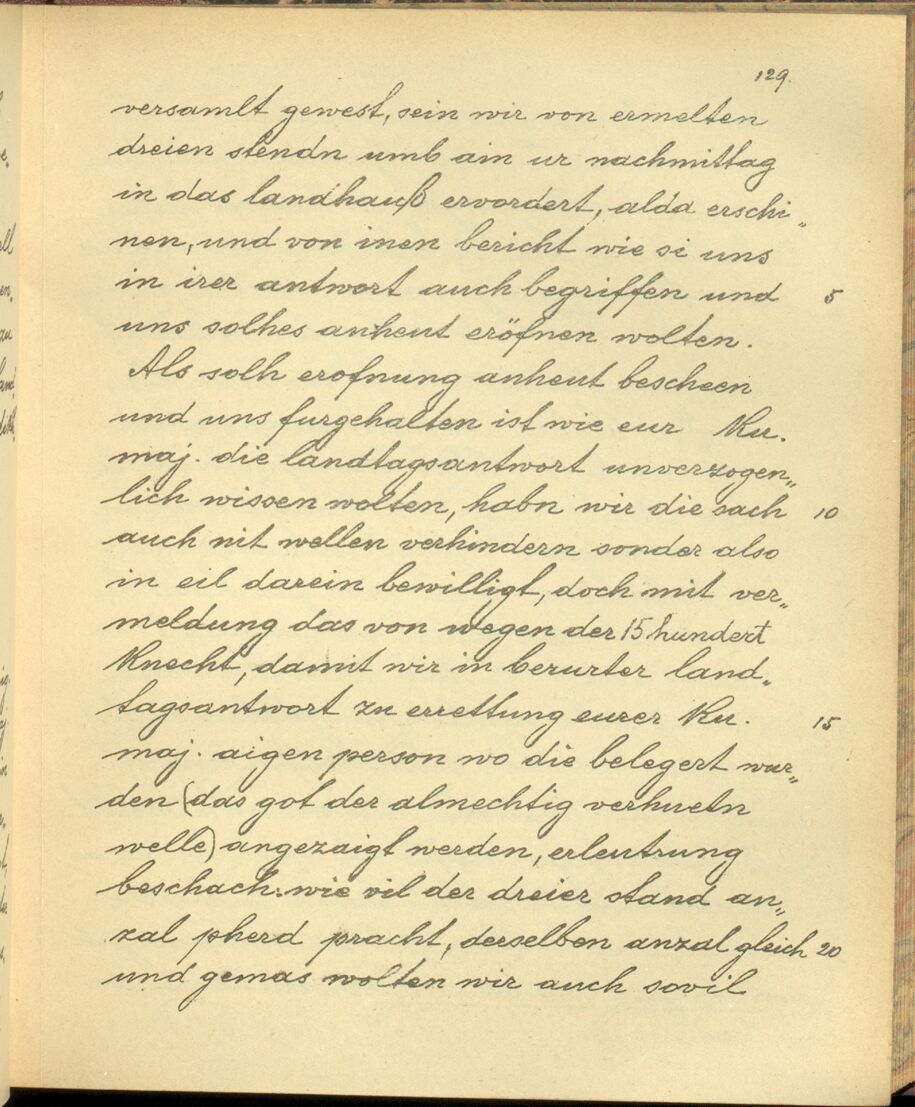 129.
versamlt gewest, sein wir von ermelten
dreien stendn umb ain ur nachmittag
in das landhauß ervordert, alda erschi„
nen, und von inen bericht wie si uns
in irer antwort auch begriffen und 5
uns solhes anheut eröfnen wolten.
Als solh erofnung anheut bescheen
und uns furgehalten ist wie eur Ku.
maj. die landtagsantwort unverzogen„
lich wissen wolten, habn wir die sach 10
auch nit wellen verhindern sonder also
in eil darein bewilligt, doch mit ver„
meldung das von wegen der 15 hundert
Knecht, damit wir in berurter land„
tagsantwort zu errettung eurer Ku. 15
maj. aigen person wo die belegert wur„
den (das got der almechtig verhuetn
welle) angezaigt werden, erleutrung
beschach: wie vil der dreier stand an„
zal pherd pracht, derselben anzal gleich 20
und gemas wolten wir auch sovil